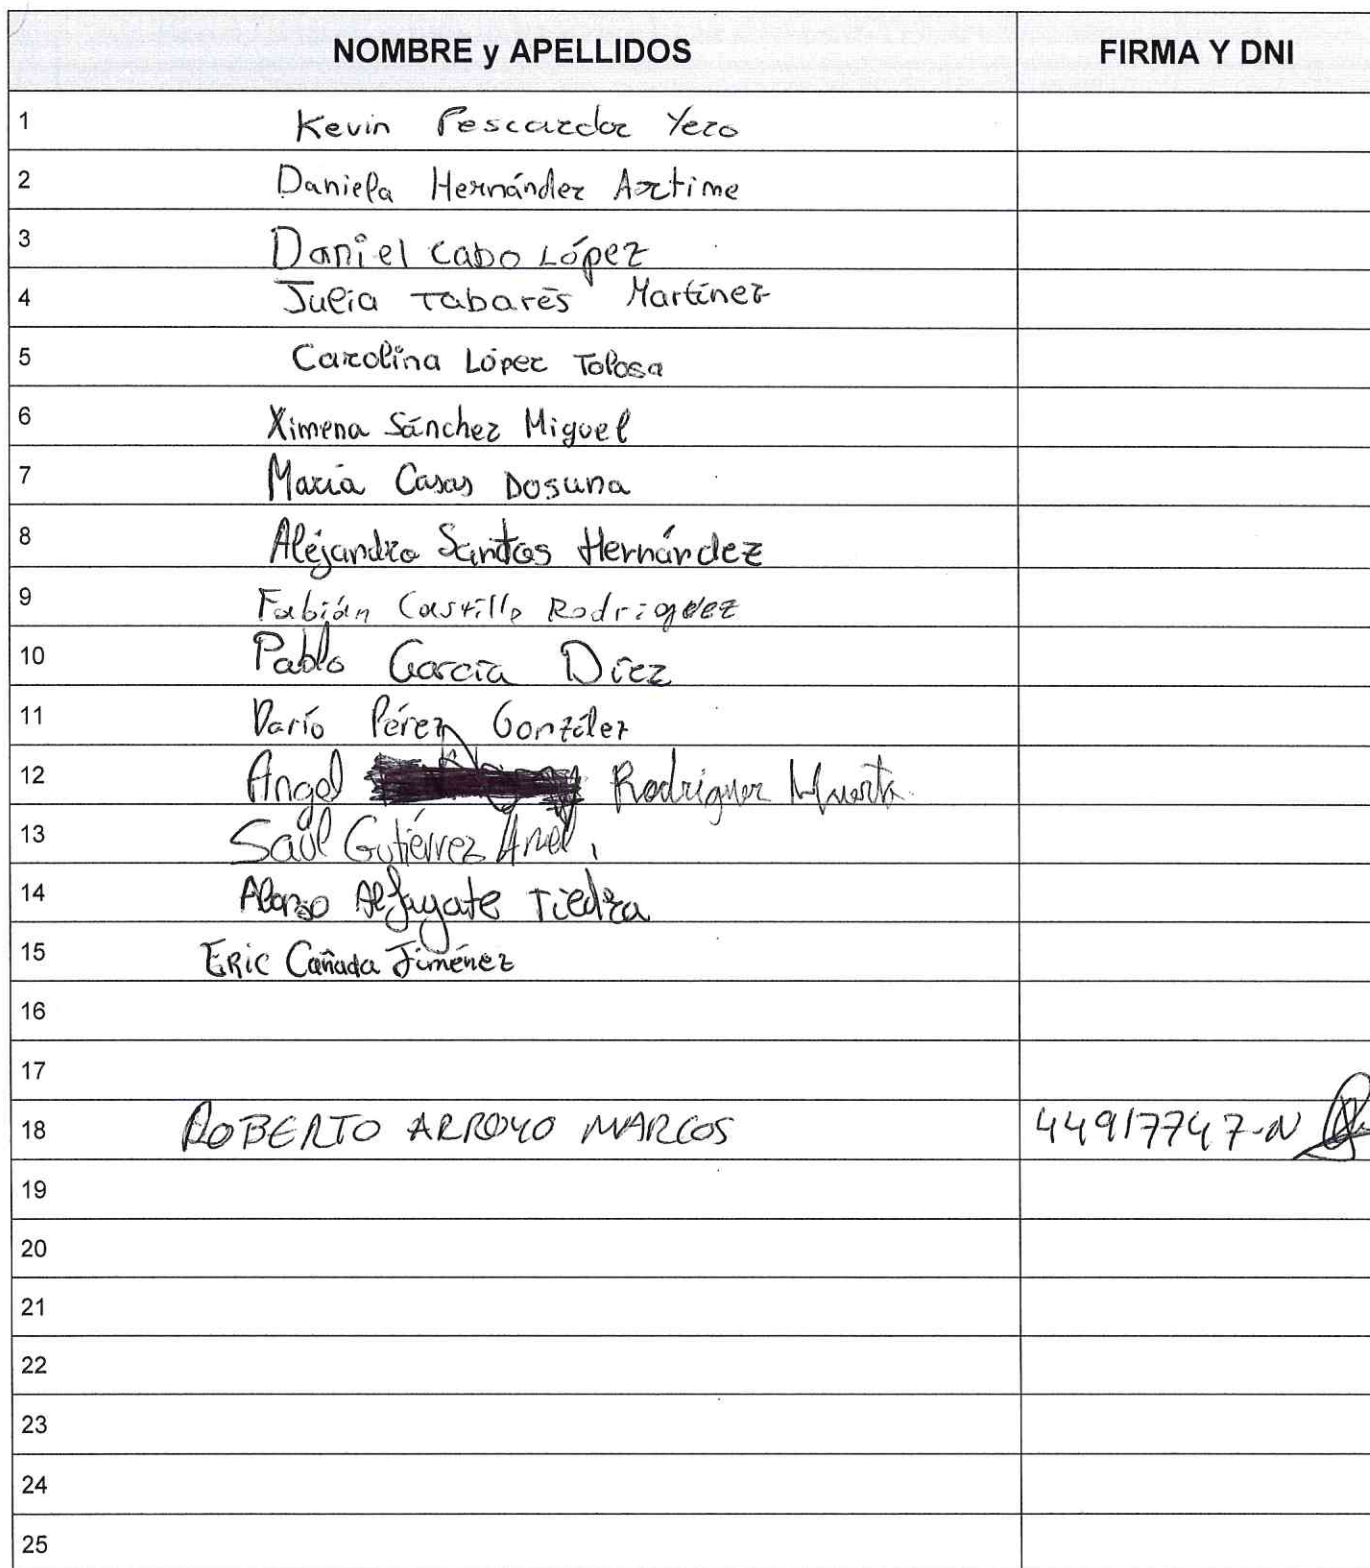 NOMBRE y APELLIDOS FIRMA Y DNI
1 Kevin Pescador Yero
2 Daniela Hernández Artime
3 Daniel Cabo López
4 Julia Tabarés Martínez
5 Carolina López Tolosa
6 Ximena Sánchez Miguel
7 María Casas Dosuna
8 Alejandro Santos Hernández
9 Fabián Castillo Rodríguez
10 Pablo García Díez
11 Darío Pérez González
12 Ángel Rodríguez
13 Saúl Gutiérrez
14 Alonso Alfayate Tiedra
15 ERIC Cañada Jiménez
16
17
18 ROBERTO ARROYO MARCOS 44917747-N
19
20
21
22
23
24
25